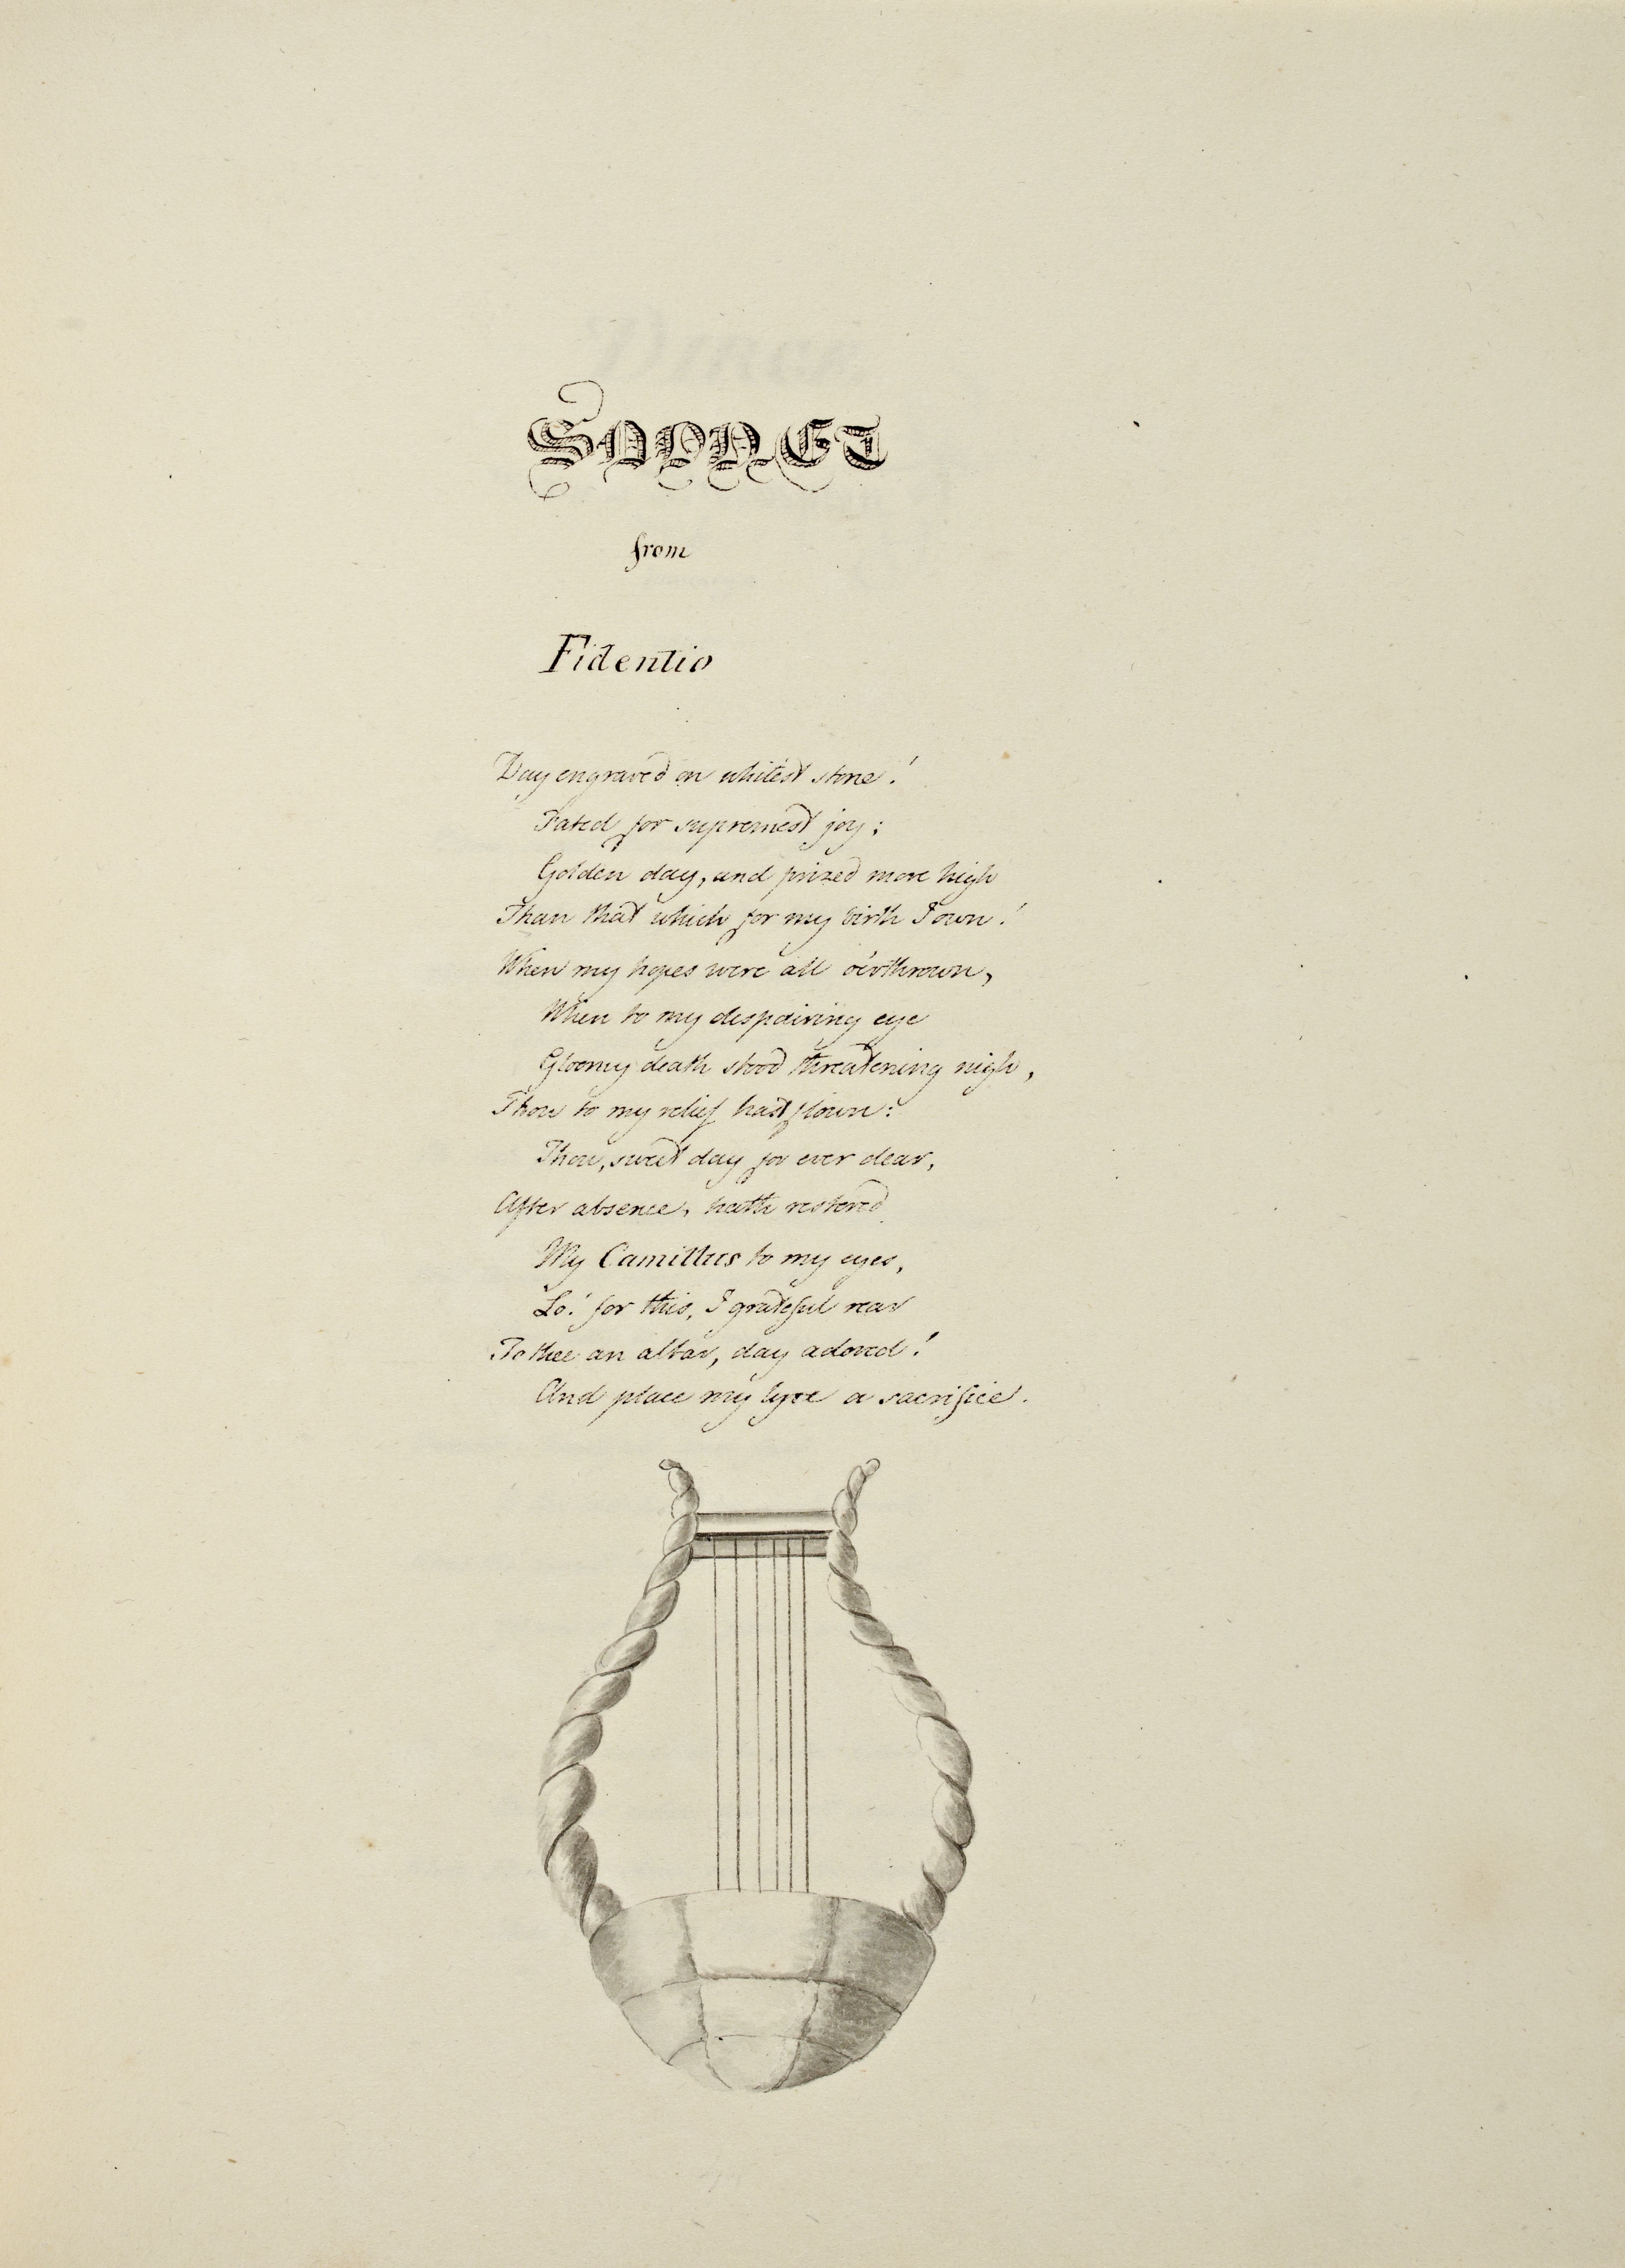 SONNET
from
Fidentio
Day engraved on whitest stone!
Fated for supremest joy;
Golden day, and prized more high
Than that which for my birth I own!
When my hopes were all o'erthrown,
When to my despairing eye
Gloomy death stood threatening nigh,
Thou to my relief hast flown:
Thou, sweet day for ever dear,
After absence, hath restored
My Camillus to my eyes,
Lo! for this, I grateful rear
To thee an altar, day adored!
And place my lyre a sacrifice.